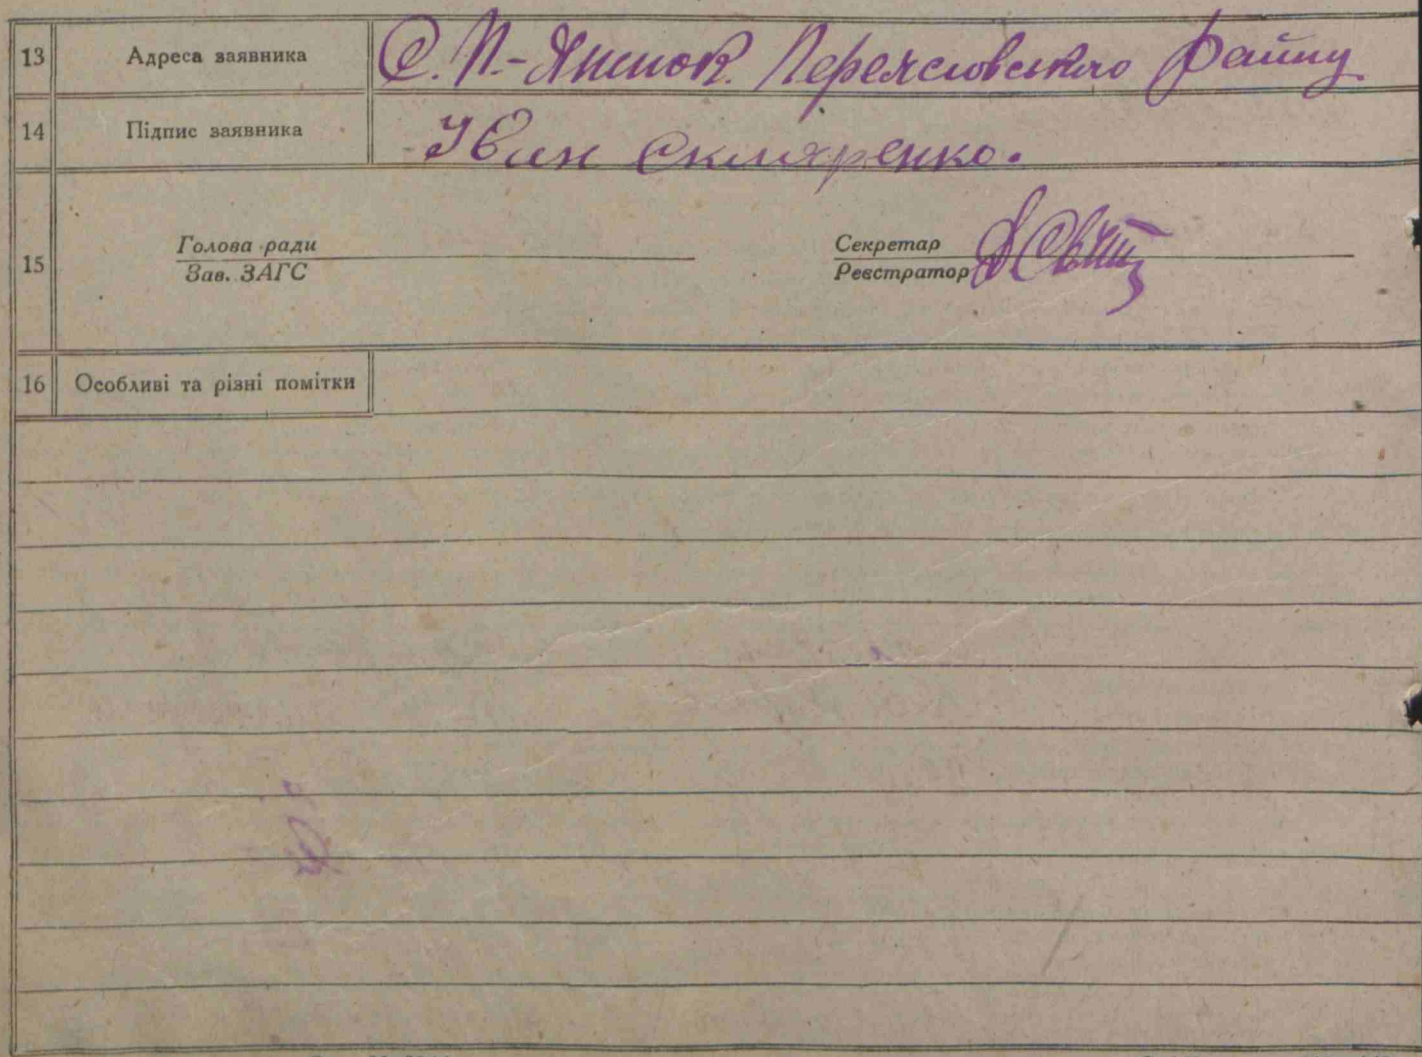 13 Адреса заявника С. П.-Яненок. Переяславського району
14 Підпис заявника Іван Скляренко.
Голова ради Секретар
15
Зав. ЗАГС Реєстратор
16 Особливі та різні помітки